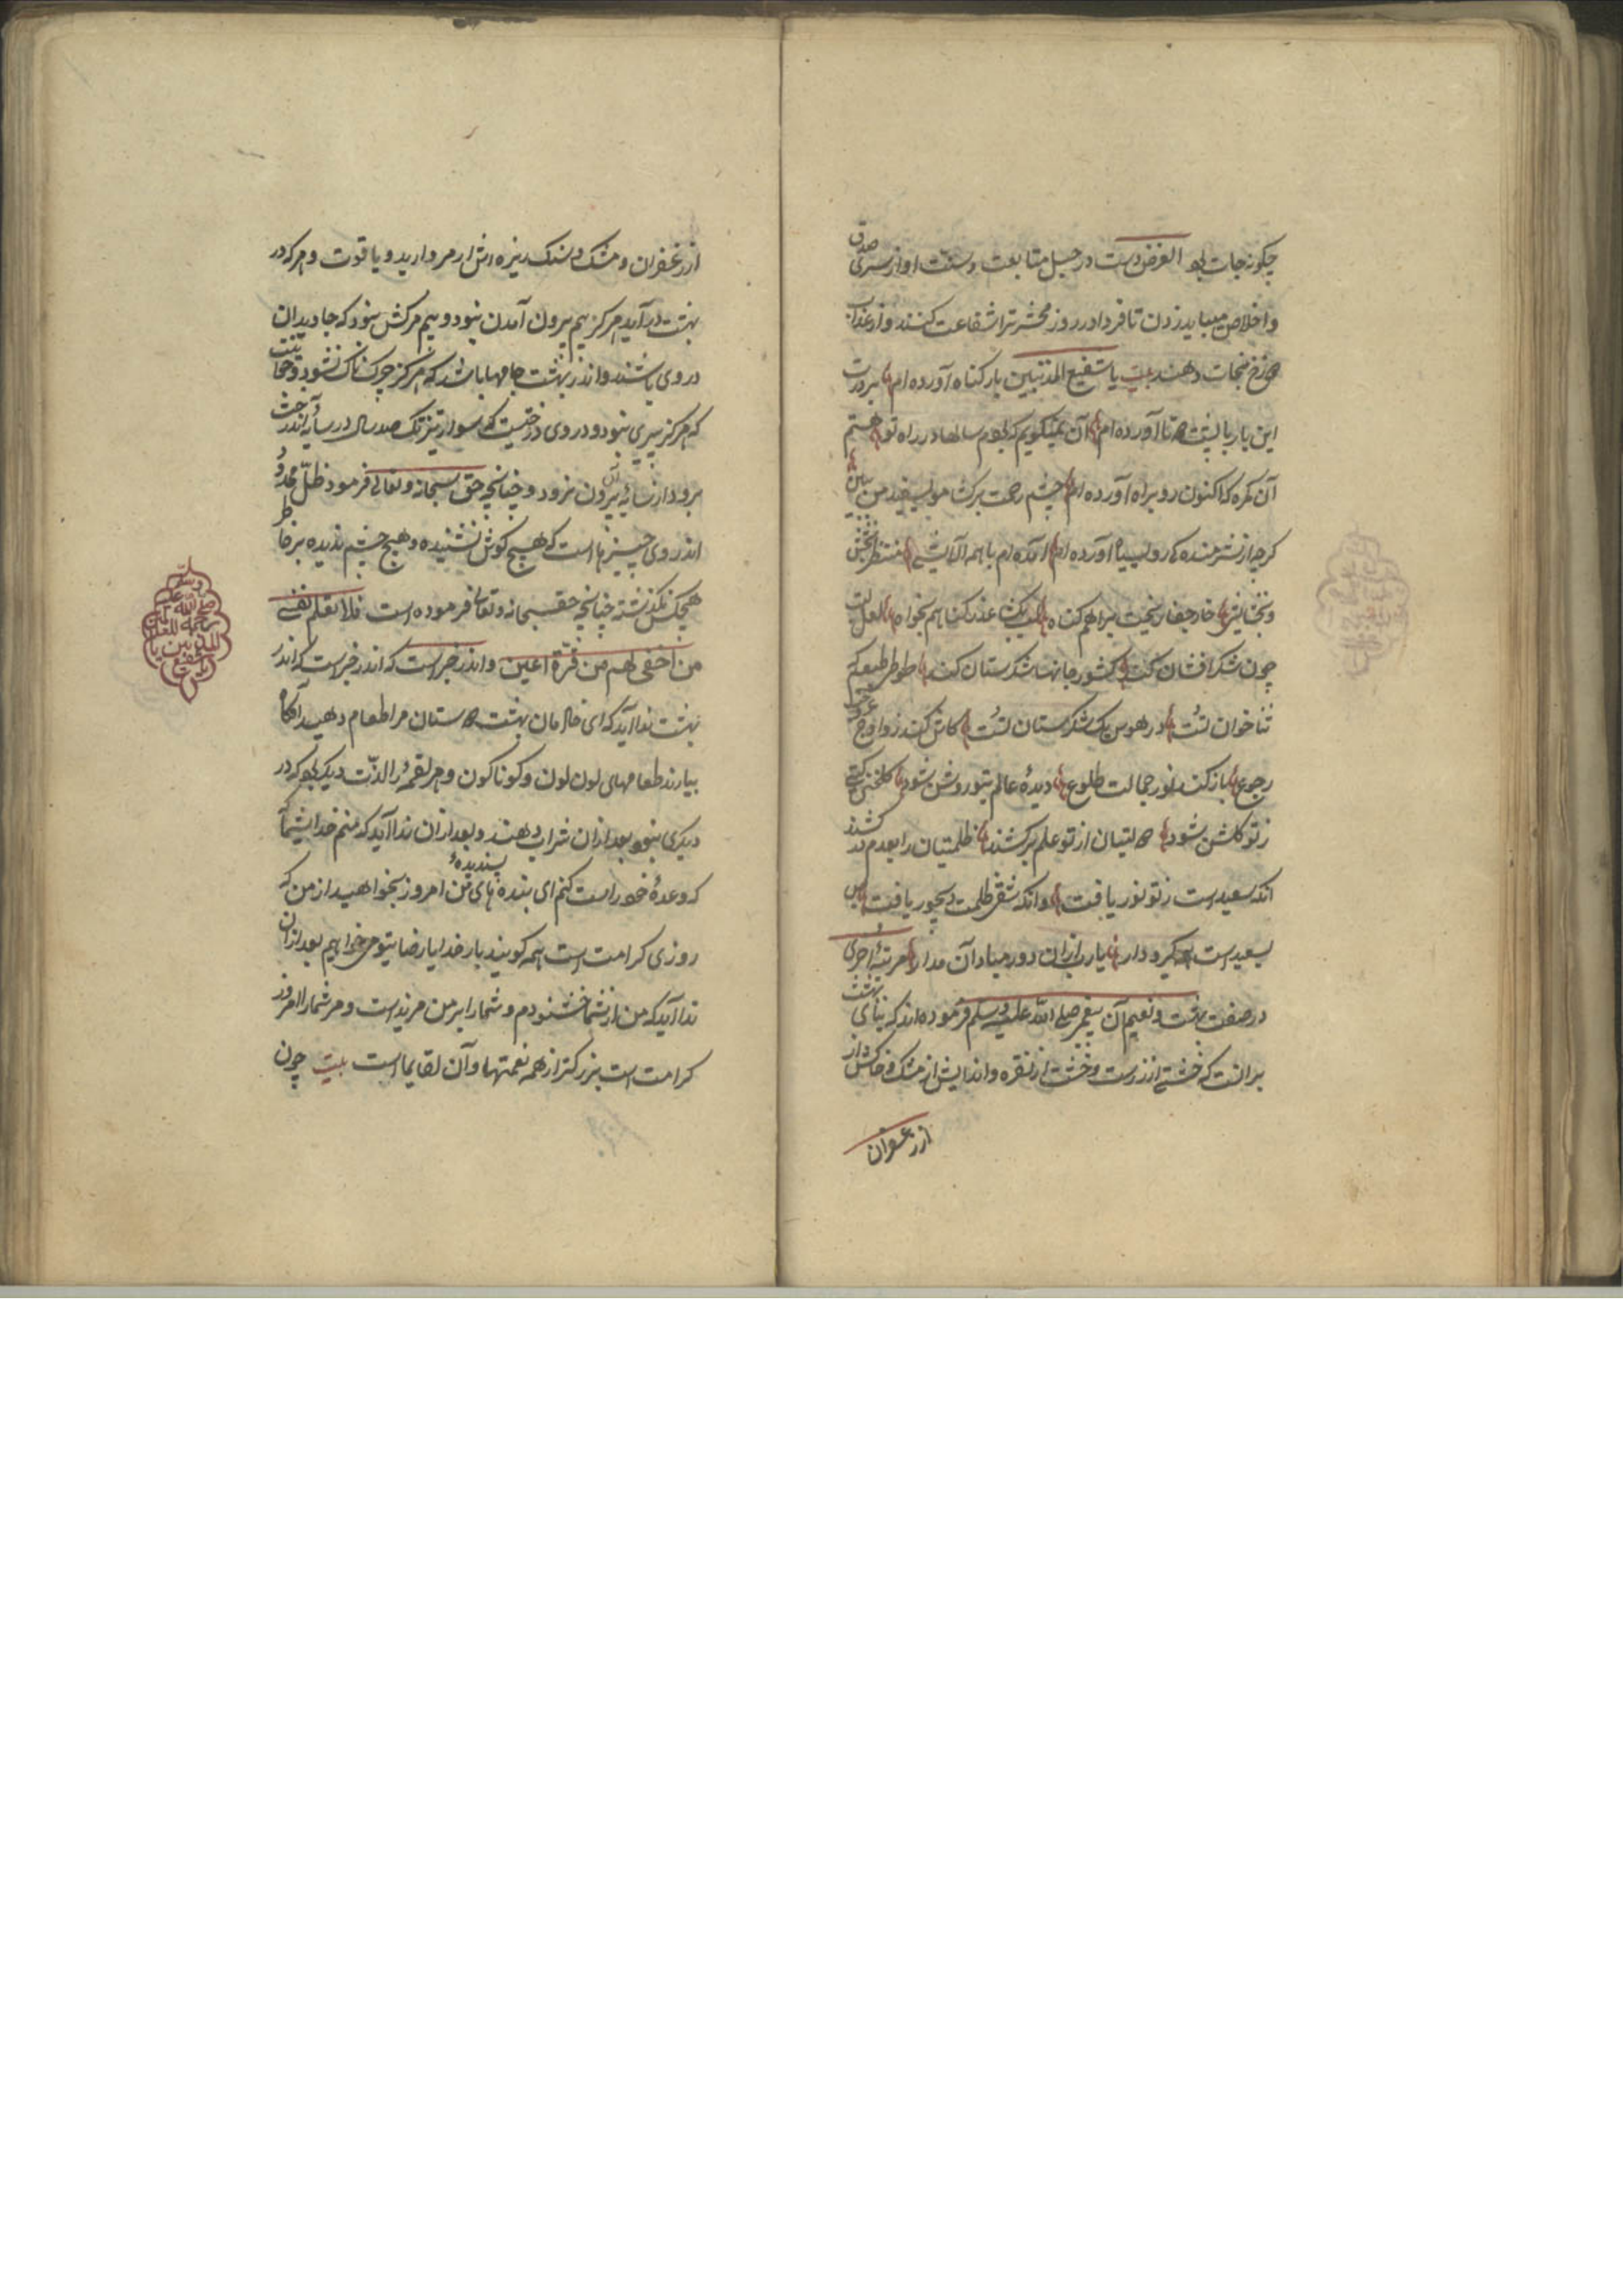 چکونه جات بود الغرض دست در حبل متابعت و سنت او از سر صدق
و اخلاص میباید زدن تا فردا در روز محشر ترا شفاعت کنند و از عذاب
دوزخ نجات دهند بیت یا شفیع المذنبین بار کناه آورده ام بر درت
این بار با پشت دوتا آورده ام آن نمیکویم که بودم سالها در راه تو هستم
آن کمره که اکنون رو براه آورده ام چشم رحمت برکشا موی سفید من ببین
کرچه از شرمنده کی روی سیاه آورده ام آمده ام با همه آلایشی منتظر بخشش
و بخشایشی خار جفا ریخت براهم کناه لب بکشا عذر کناهم بخواه لعل لبت
چون شکر افشان کند کشور جانها شکرستان کند طوطی طبعم که
ثنا خوان تست در هوس یک شکرستان تست کاش کند زاوج عروج
رجوع باز کند نور جمالت طلوع دیدهٔ عالم بتو روشن شود کلخن کیتی
ز تو کلشن شود دولتیان از تو علم برکشند ظلمتیان را بعدم در کشند
آنکه سعیدست ز تو نور یافت وانکه شقی ظلمت دیجور یافت پس
بسعید است کیرودار یارب ازان دور میاد آن مدار مرتبهٔ اخری
در صفت بهشت و نعیم آن پیغمبر صلی الله علیه وسلم فرموده اند که بنای بهشت
برانست که خشتی از زرست و خشت از نقره و اندایش از مشک و خاکش از
از زعفران
از زعفران و مشک و سنک ریزه اش از مروارید و یاقوت و هر که در
بهشت در آید هرکز بیم بیرون آمدن نبود و بیم مرکش نبود که جاویدان
در وی باشند و اندر بهشت جامها باشد که هرکز چرک ناک نشود و جوانیست
که هرکز پیری نبود و در وی درختیست که سوار تیزتک صد سال در سایه آن درخت
برود از سایهٔ آن بیرون نرود و چنانچه حق سبحانه و تعالی فرمود و ظل ممدود
اندر وی چیزها است که هیچ کوش نشنیده و هیچ چشم ندیده بر خاطر
هیچکس نکذشته چنانچه حق سبحانه و تعالی فرموده است فلا تعلم نفس
من اخفی لهم من قرة اعین و اندر خبر است که اندر خبر است که اندر
بهشت ندا آید که ای خادمان بهشت دوستان مرا طعام دهید آنکاه
بیارند طعامهای لون لون و کوناکون و هر لقمهٔ را لذت دیکر بود که در
دیکری نبود بعد ازان شراب دهند و بعد ازان ندا آید که منم خدای شما
که وعدهٔ خود راست کنم ای بنده های پسندیدهٔ من امروز بخواهید از من که
روزی کرامت است همه کویند بار خدایا رضای تو می خواهیم بعد ازان
ندا آید که من از شما خشنودم و شما را بر من مزیدست و مر شما را امروز
کرامت است بزرکتر از همه نعمتها و آن لقای ما است بیت چون